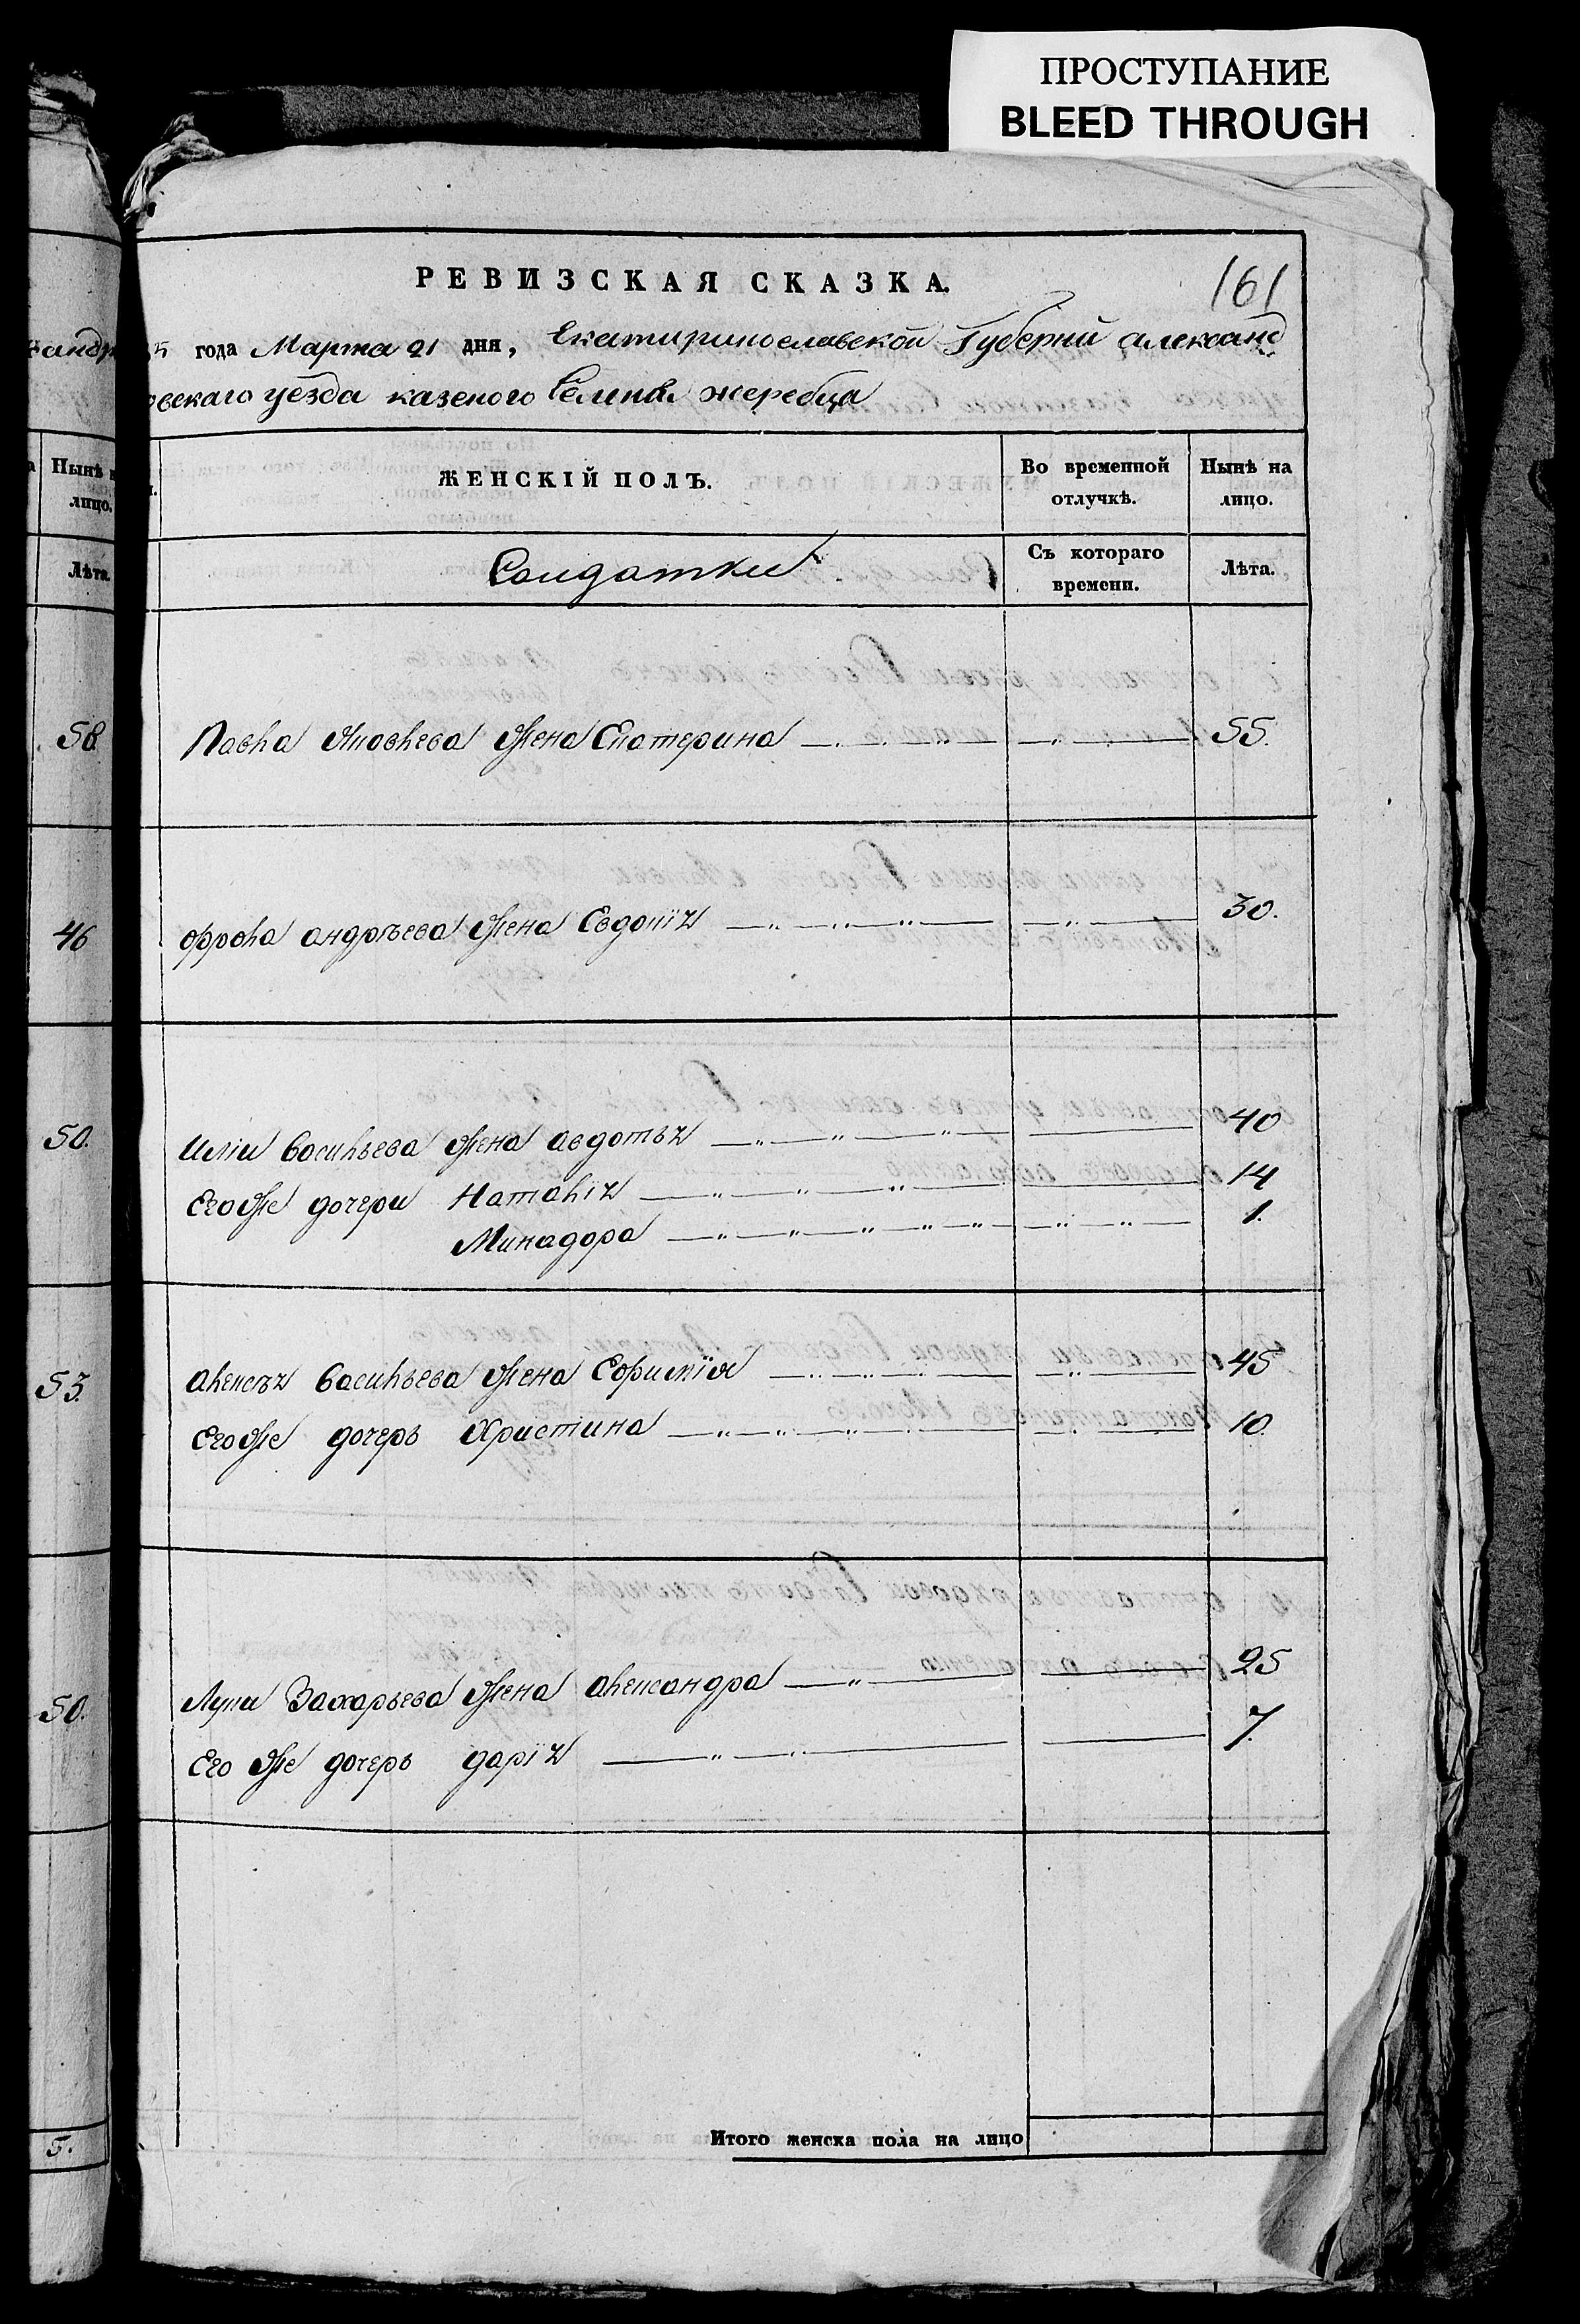 ПРОСТУПАНИЕ
BLEED THROUGH
РЕВИЗСКАЯ СКАЗКА.
161
года Марта 21 дня, Екатиринославской Губернии александ
овскаго уезда казеного Селения жеребца
Нынѣ
лицо.
Лѣта.
ЖЕНСКІЙ ПОЛЪ.
Во временной
отлучкѣ.
Нынѣ на
лицо.
Солдатки
Съ котораго
времени.
Лѣта.
58
Павла Яковлева Жена Екатерина 55.
46
Фрола андрѣева Жена Евдокія 30.
50.
Иліи Васильева Жена авдотья 40
Егоже дочери Наталія 14
Минадора 1.
53.
алексѣя Васильева Жена Ефимія 45
Егоже дочерь Христина 10.
50.
Луки Захарьева Жена александра 25
Его же дочерь дарія 7.
5.
Итого женска пола на лицо